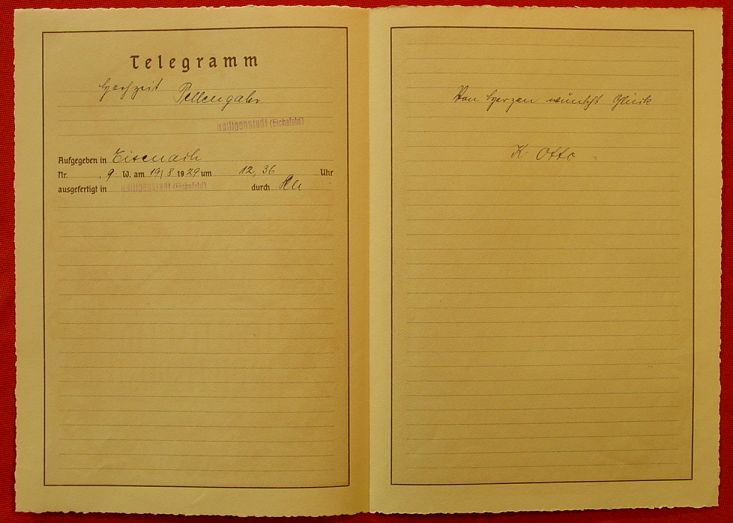 Telegramm
Hochzeit Pellengahr
Heiligenstadt (Eichsfeld)
Aufgegeben in Eisenach
Nr. 9 W. am 19/8 1929 um 12,36 Uhr
ausgefertigt in Heiligenstadt (Eichsfeld) durch
Von Herzen wünscht Glück
K. Otto